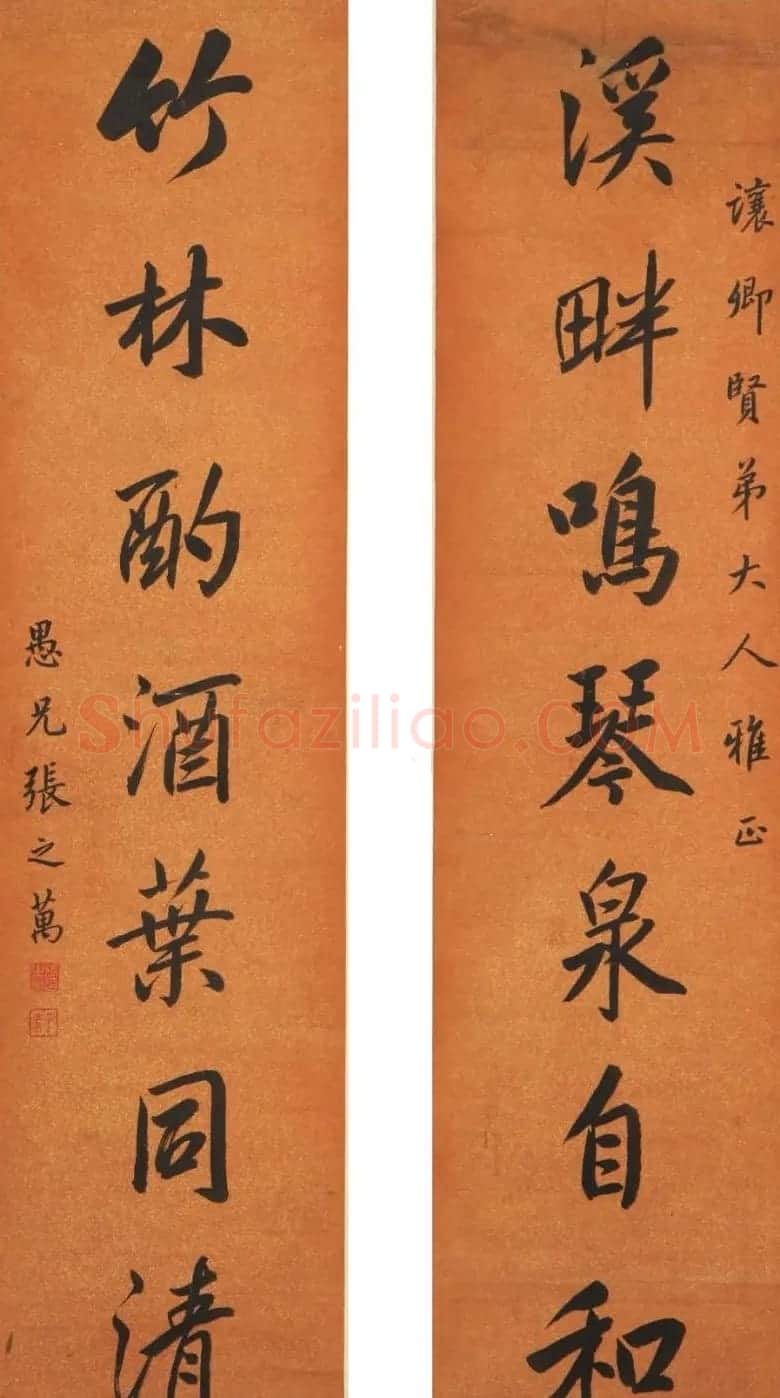 讓卿賢弟大人雅正
溪畔鳴琴泉自和
竹林酌酒葉同清
愚兄張之萬
Shufaziliao.COM